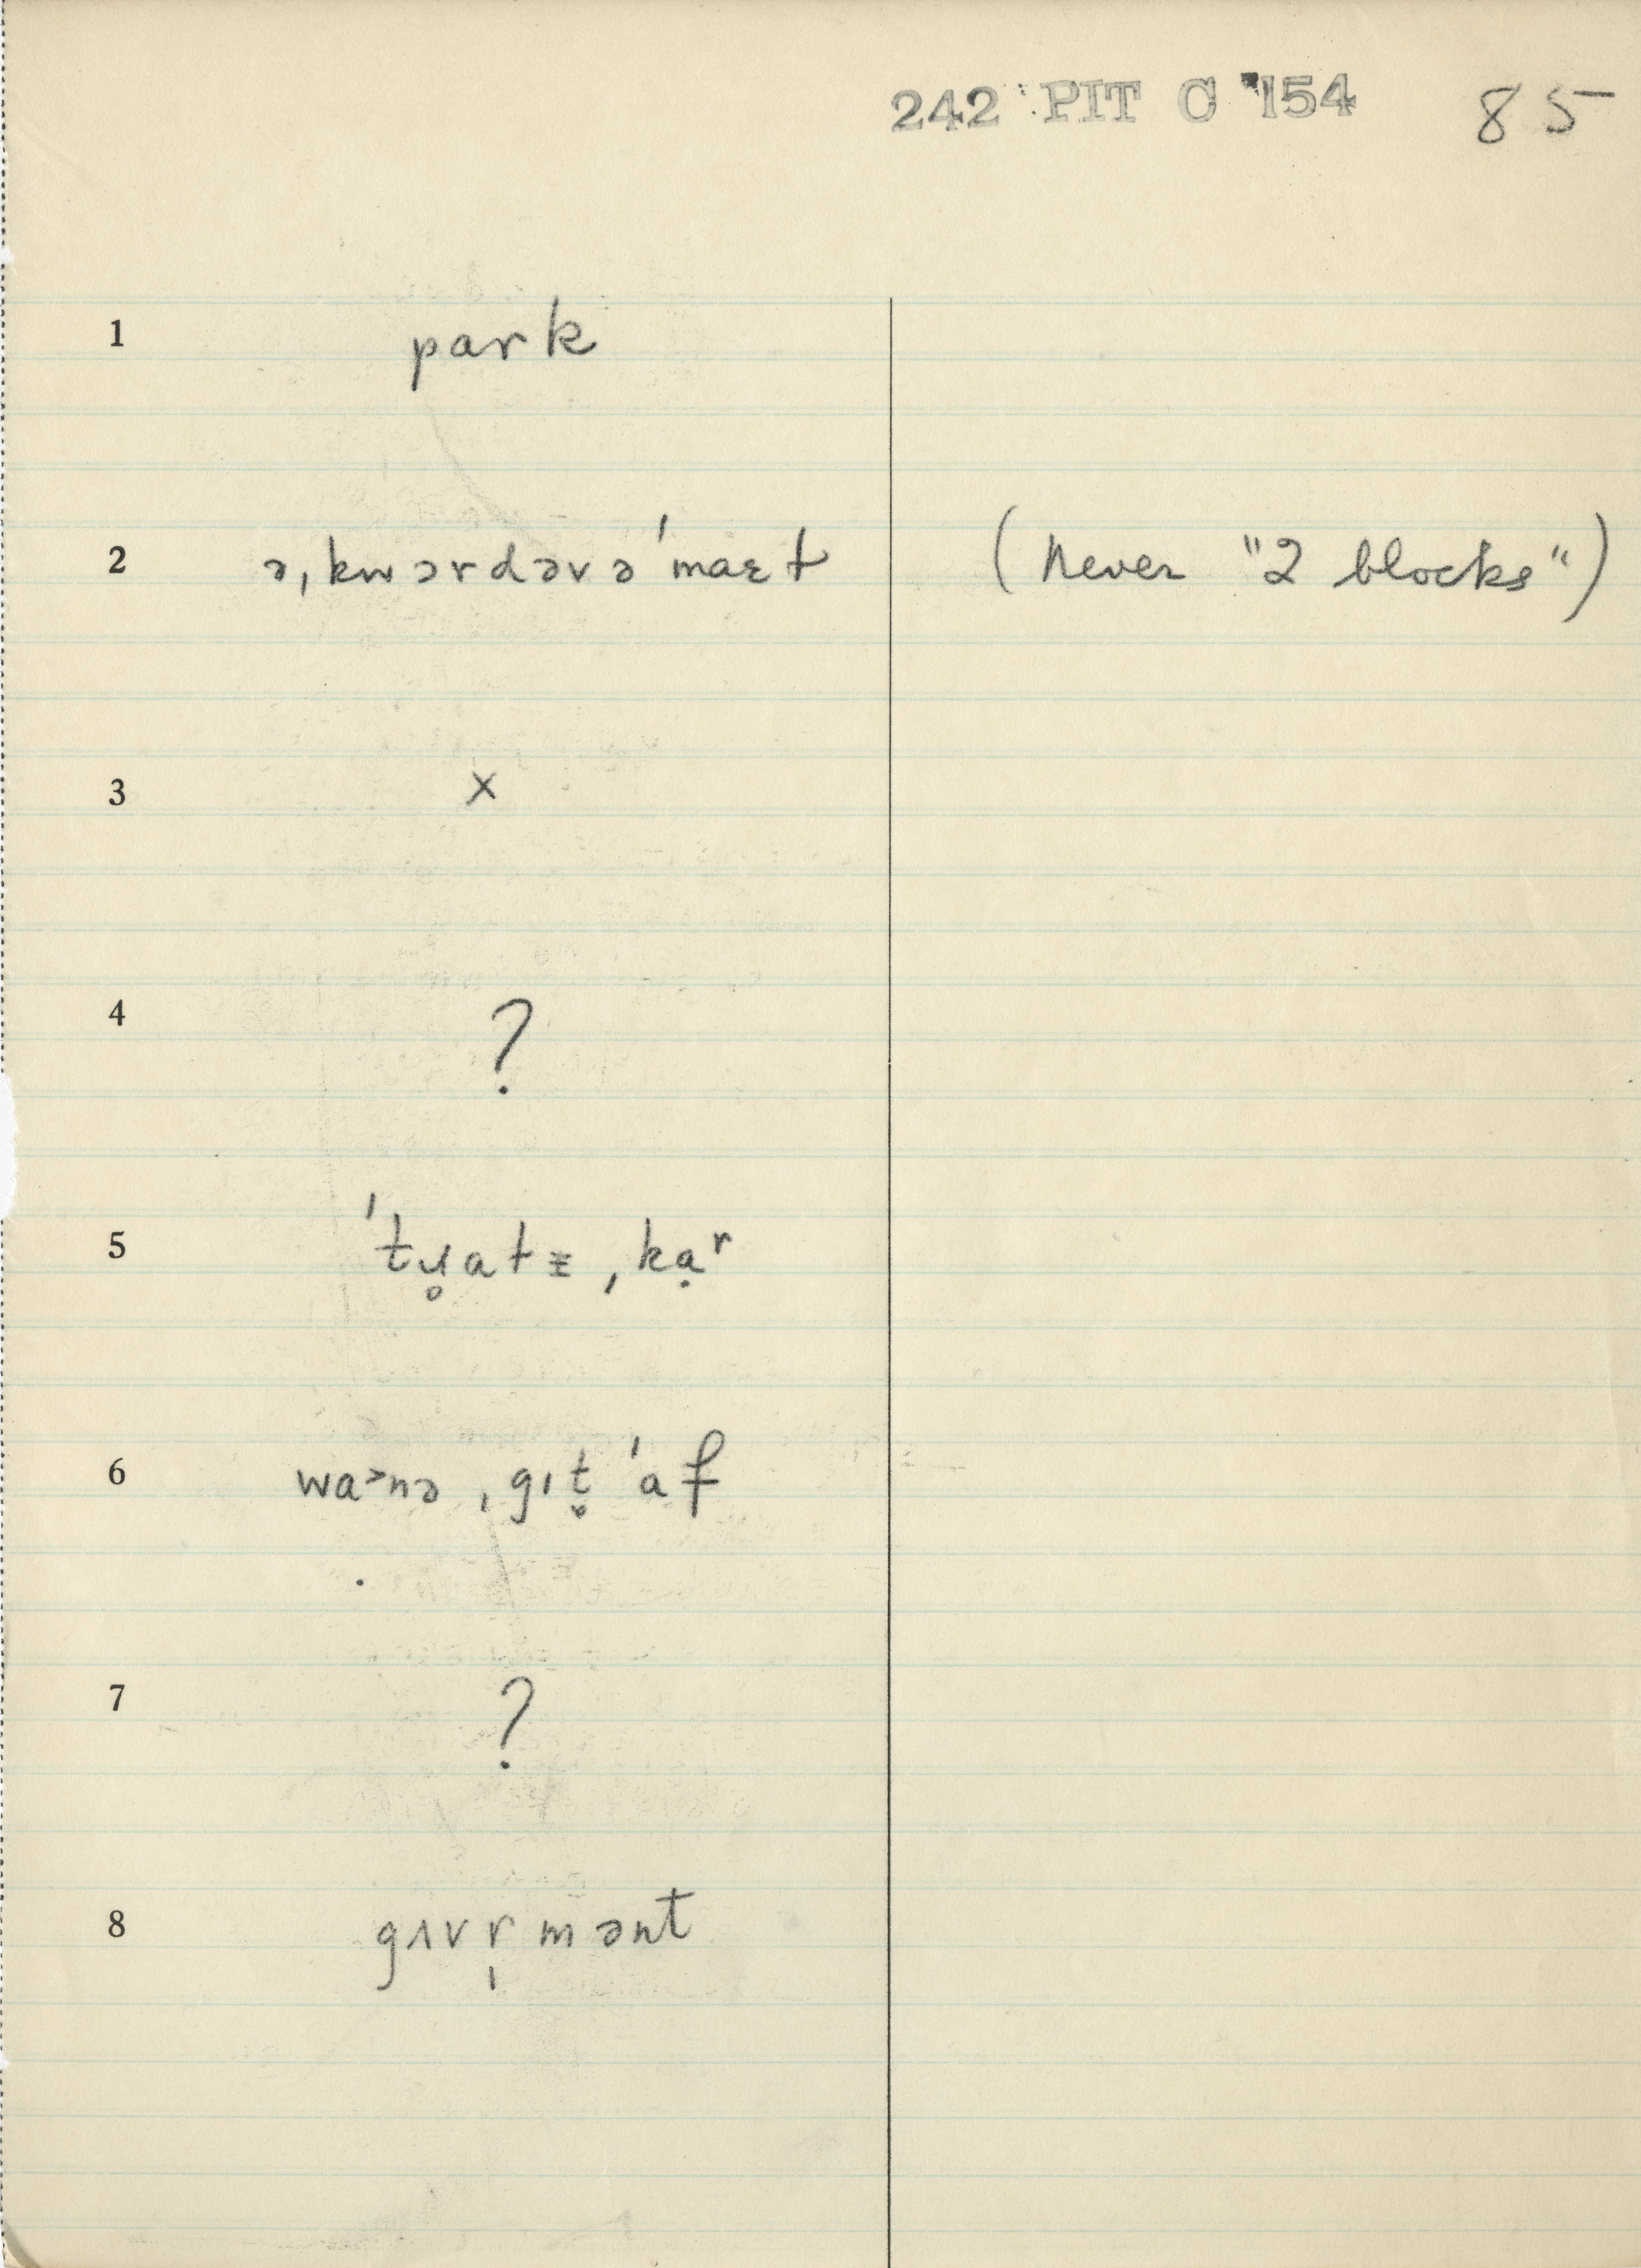 242 PIT C 154 85
1 park
2 ə ˌkwərdərə ˈmaɛɫ (Never "2 blocks")
3 x
4 ?
5 ˈtɹ̥aɫᵻ ˌkạʳ
6 wa˃nə ˌgɪt̬ ˈaf
7 ?
8 gʌvr̩mənt